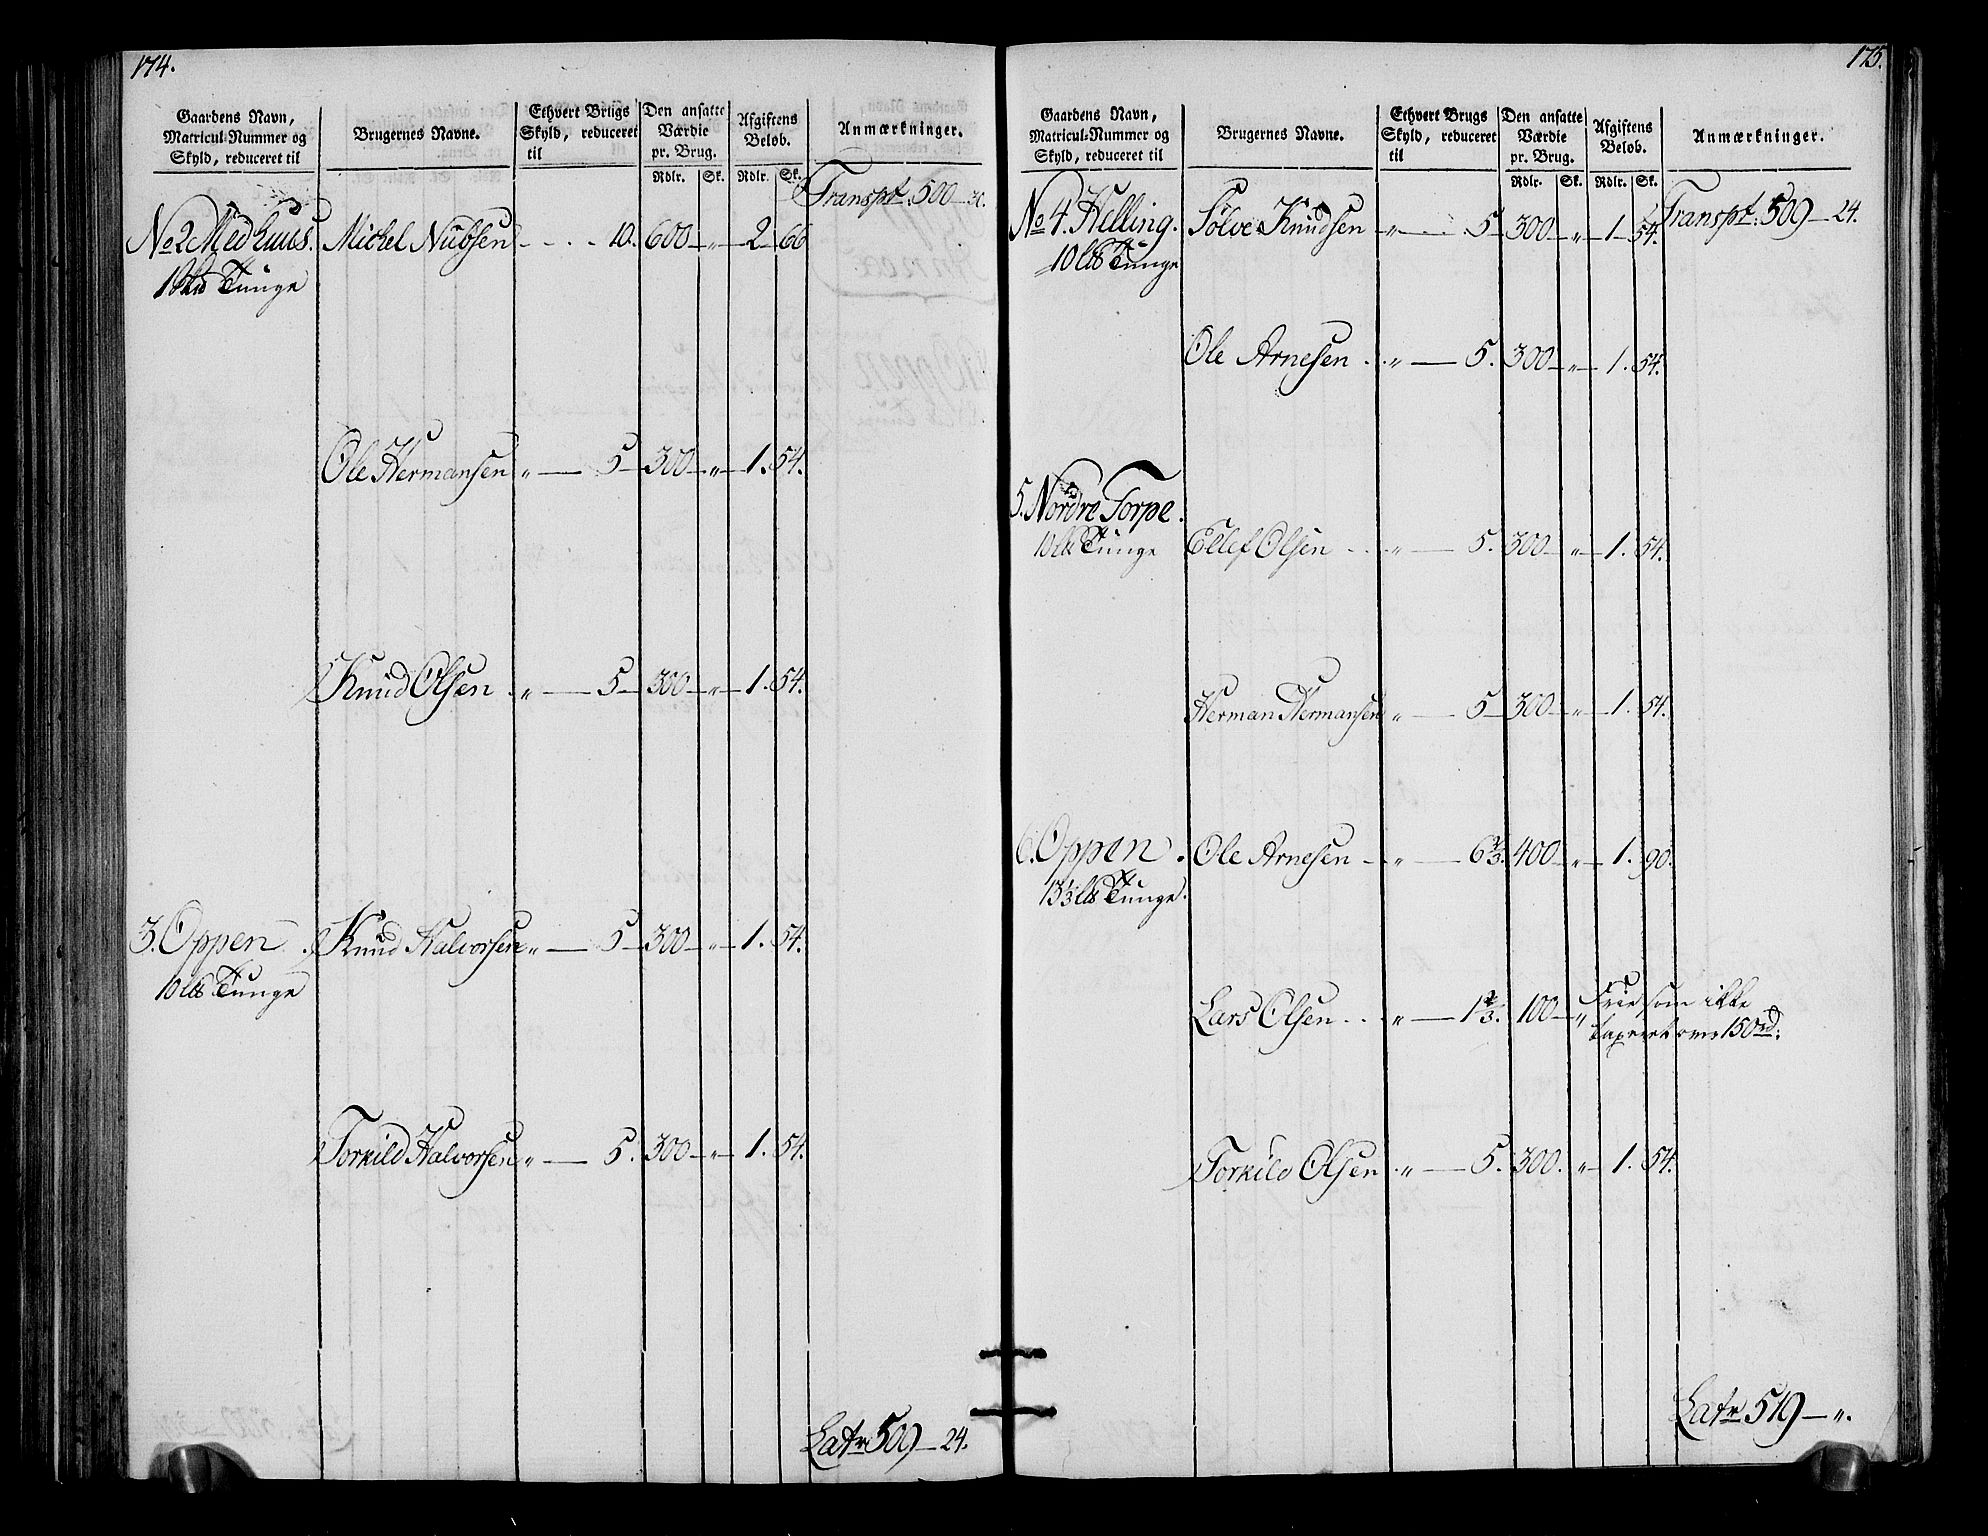 174.
Gaardens Navn, Matricul-Nummer og Skyld, reduceret til | Brugernes Navne. | Ethvert Brugs Skyld, reduceret til | Den ansatte Værdie pr. Brug. Rdlr. Sk. | Afgiftens Beløb. Rdlr. Sk. | Anmærkninger.
Transpt. 500 — 30.
No 2 Medhuus. Michel Nubsen - - - 10. 600 — „ — 2 — 66
Tunge
Ole Hermansen „ — 5 — 300 — „ — 1. 54.
Knud Olsen „ — 5 — 300 — „ — 1. 54.
3. Oppen. Knud Halvorsen „ — 5 — 300 — „ — 1. 54.
10 lb Tunge
Torkild Halvorsen „ — 5. 300 — „ — 1. 54.
Latr 509 — 24.
175.
Gaardens Navn, Matricul-Nummer og Skyld, reduceret til | Brugernes Navne. | Ethvert Brugs Skyld, reduceret til | Den ansatte Værdie pr. Brug. Rdlr. Sk. | Afgiftens Beløb. Rdlr. Sk. | Anmærkninger.
Transpt. 509 — 24.
No 4. Helling. Sølve Knudsen „ — 5 — 300 — „ — 1 — 54.
10 lb Tunge
Ole Arnesen „ — 5. 300 — „ — 1. 54.
5. Nordre Torpe.
10 lb Tunge Ellef Olsen - - „ — 5. 300 — „ — 1. 54.
Herman Hermansen „ — 5 — 300 — „ — 1. 54.
6. Oppen. Ole Arnesen — „ — 6⅔. 400 — „ — 1. 90.
13⅓ lb Tunge.
Lars Olsen - - „ — 1⅔. 100 — „ Frie som ikke
taxeret over 150 rd.
Torkild Olsen „ — 5. 300. „ — 1. 54.
Latr 519 — „.